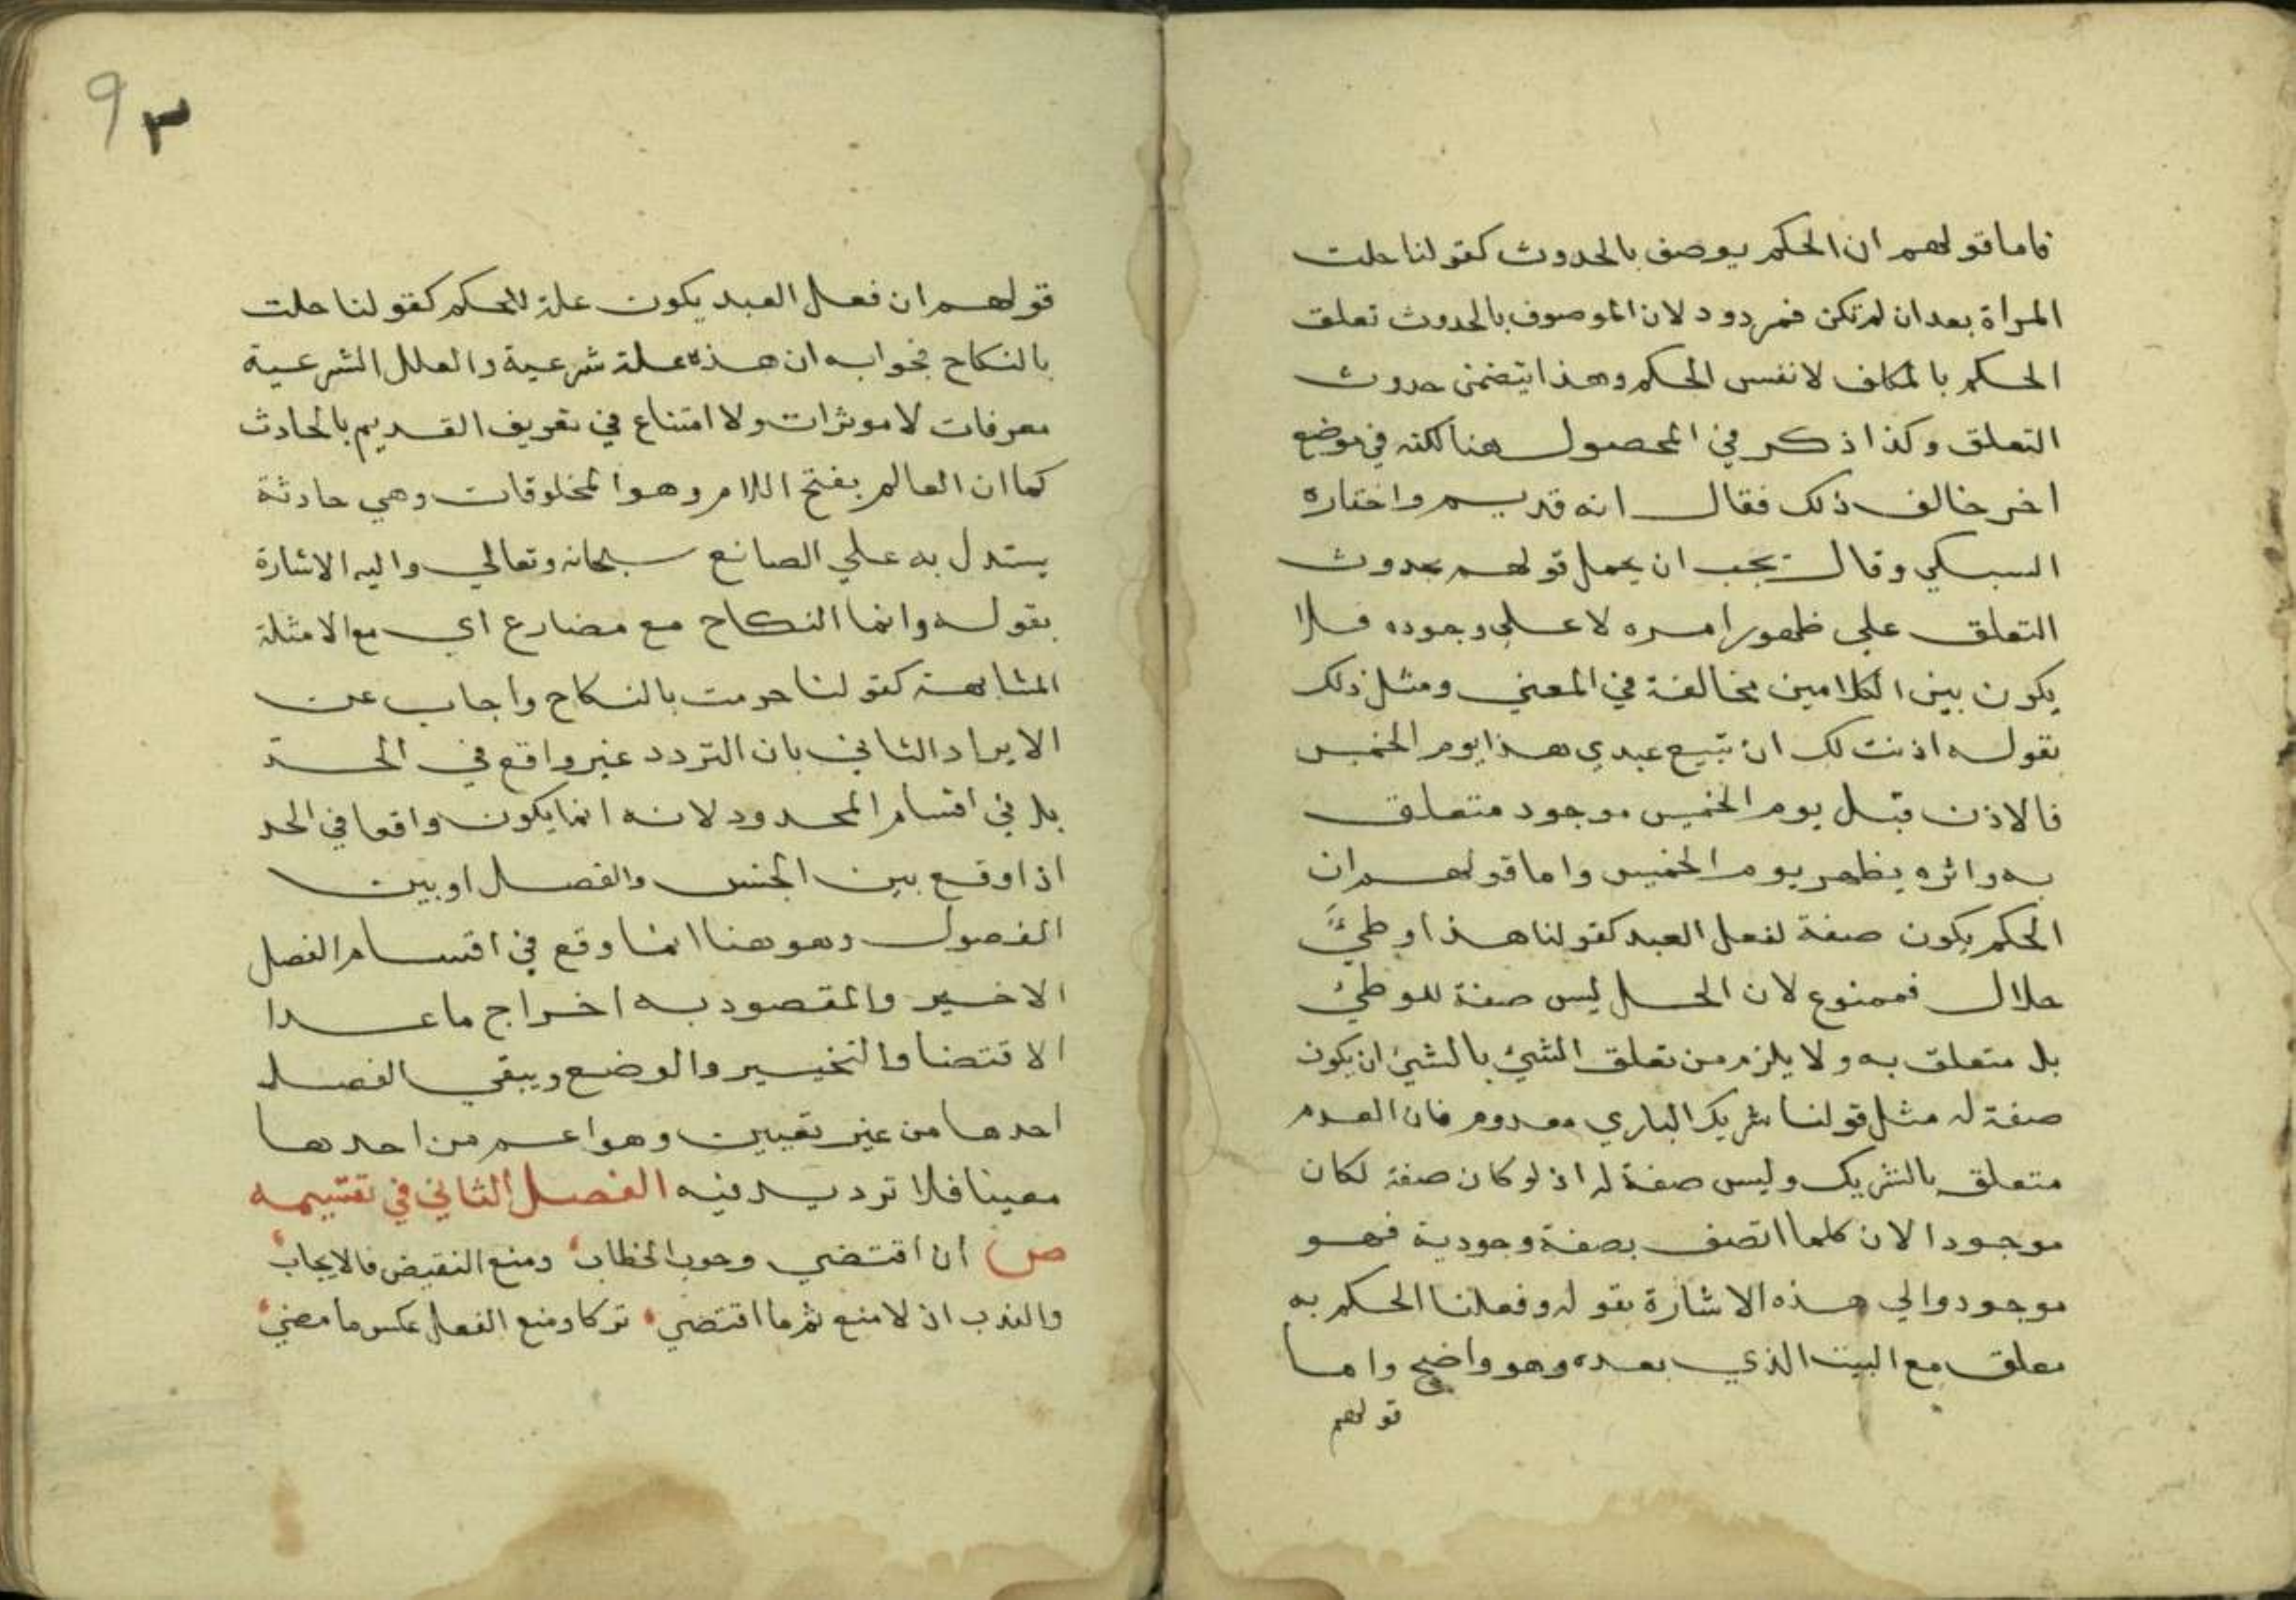 فاما قولهم ان الحكم يوصف بالحدوث كقولنا حلت
المراة بعد ان لم تكن فمردود لان الموصوف بالحدوث تعلق
الحكم بالمكلف لا نفس الحكم وهذا يتضمن حدوث
التعلق وكذا ذكر في المحصول هنا لكنه في موضع
اخر خالف ذلك فقال انه قديم واختاره
السبكي وقال يجب ان يحمل قولهم بحدوث
التعلق علي ظهور امره لا علي وجوده فلا
يكون بين الكلامين مخالفة في المعني ومثل ذلك
بقوله اذنت لك ان تبيع عبدي هذا يوم الخميس
فالاذن قبل يوم الخميس موجود متعلق
به واثره يظهر يوم الخميس واما قولهم ان
الحكم يكون صفة لفعل العبد كقولنا هذا وطئ
حلال فممنوع لان الحل ليس صفة للوطئ
بل متعلق به ولا يلزم من تعلق الشئ بالشئ ان يكون
صفة له مثل قولنا شريك الباري معدوم فان العدم
متعلق بالشريك وليس صفة له اذ لو كان صفة لكان
موجودا لان كلما اتصف بصفة وجودية فهو
موجود والي هذه الاشارة بقوله وفعلنا الحكم به
معلق مع البيت الذي بعده وهو واضح واما
قولهم
٩٣
قولهم ان فعل العبد يكون علة للحكم كقولنا حلت
بالنكاح فجوابه ان هذه علة شرعية والعلل الشرعية
معرفات لا موثرات ولا امتناع في تعريف القديم بالحادث
كما ان العالم بفتح اللام وهو المخلوقات وهي حادثة
يستدل به علي الصانع سبحانه وتعالي واليه الاشارة
بقوله وانما النكاح مع مضارع اي مع الامثلة
المشابهة كقولنا حرمت بالنكاح واجاب عن
الايراد الثاني بان التردد غير واقع في الحد
بل في اقسام المحدود لانه انما يكون واقعا في الحد
اذا وقع بين الجنس والفصل او بين
الفصول وهو هنا انما وقع في اقسام الفصل
الاخير والمقصود به اخراج ما عدا
الاقتضا والتخيير والوضع ويبقي الفصل
احدها من غير تعيين وهو اعم من احدها
معينا فلا ترديد فيه الفصل الثاني في تقسيمه
ص ان اقتضي وجوب الخطاب ومنع النقيض فالايجاب
والندب ان لا منع ثم ما اقتضي تركا ومنع الفعل عكس ما مضي